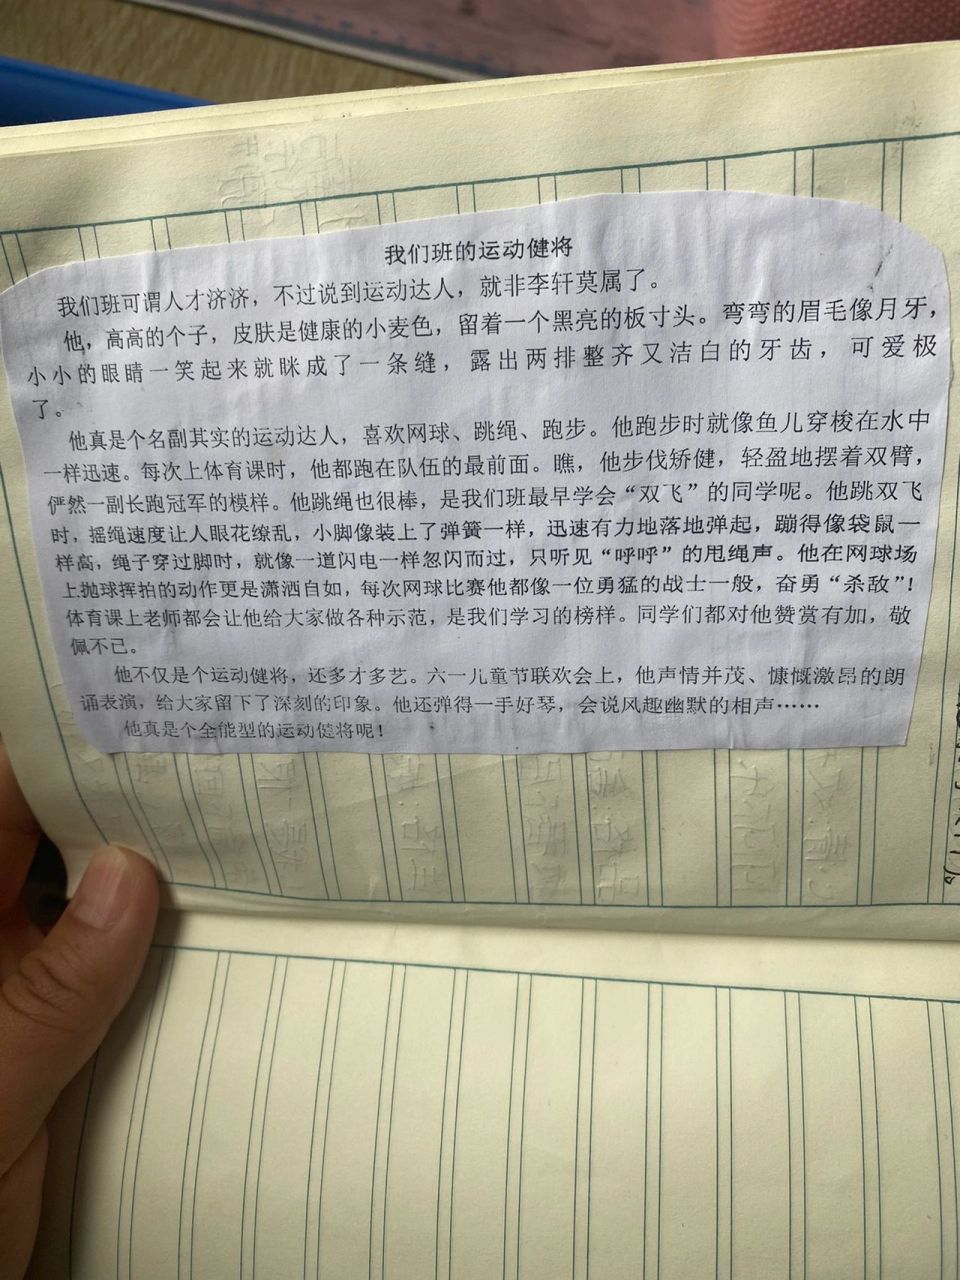 我们班的运动健将
我们班可谓人才济济，不过说到运动达人，就非李轩莫属了。
他，高高的个子，皮肤是健康的小麦色，留着一个黑亮的板寸头。弯弯的眉毛像月牙，
小小的眼睛一笑起来就眯成了一条缝，露出两排整齐又洁白的牙齿，可爱极
了。
他真是个名副其实的运动达人，喜欢网球、跳绳、跑步。他跑步时就像鱼儿穿梭在水中
一样迅速。每次上体育课时，他都跑在队伍的最前面。瞧，他步伐矫健，轻盈地摆着双臂，
俨然一副长跑冠军的模样。他跳绳也很棒，是我们班最早学会“双飞”的同学呢。他跳双飞
时，摇绳速度让人眼花缭乱，小脚像装上了弹簧一样，迅速有力地落地弹起，蹦得像袋鼠一
样高，绳子穿过脚时，就像一道闪电一样忽闪而过，只听见“呼呼”的甩绳声。他在网球场
上抛球挥拍的动作更是潇洒自如，每次网球比赛他都像一位勇猛的战士一般，奋勇“杀敌”！
体育课上老师都会让他给大家做各种示范，是我们学习的榜样。同学们都对他赞赏有加，敬
佩不已。
他不仅是个运动健将，还多才多艺。六一儿童节联欢会上，他声情并茂、慷慨激昂的朗
诵表演，给大家留下了深刻的印象。他还弹得一手好琴，会说风趣幽默的相声……
他真是个全能型的运动健将呢！